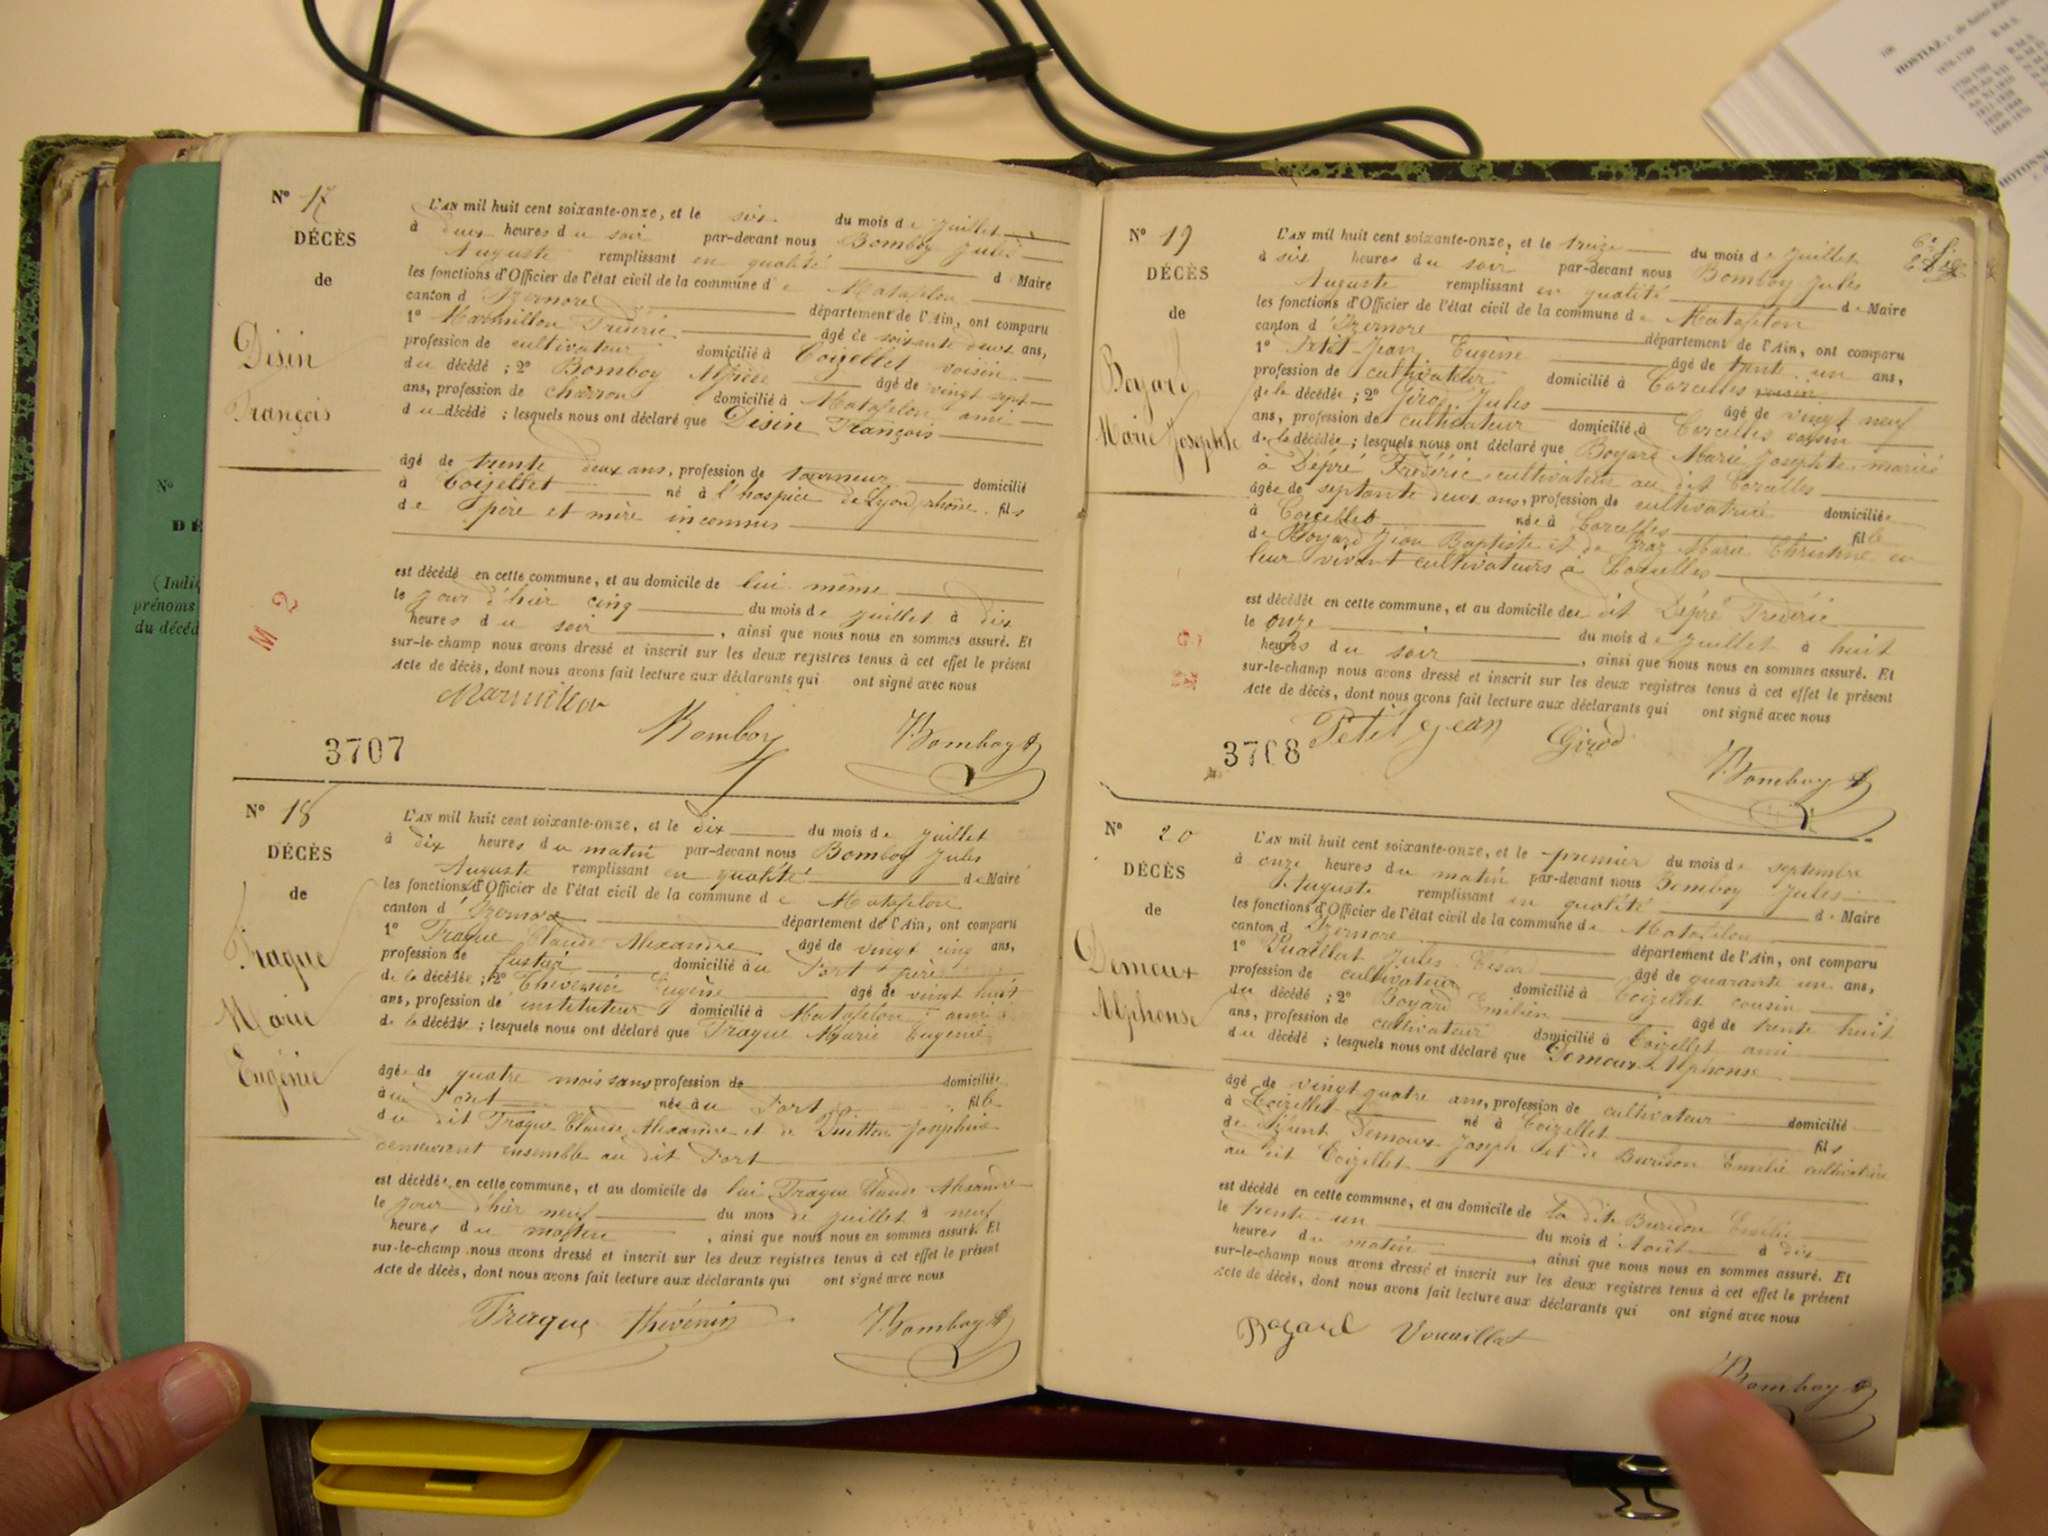 Nº 17
DÉCÈS
de
Disin
François
L'AN mil huit cent soixante-onze, et le six du mois de Juillet
à deux heures du soir par-devant nous Bomboy Jules
Auguste remplissant en qualité de Maire
les fonctions d'Officier de l'état civil de la commune de Matafelon
canton d'Izernore département de l'Ain, ont comparu
1º Marmillon Frédéric âgé de soixante deux ans,
profession de cultivateur domicilié à Coizellet voisin
du décédé ; 2º Bomboy âgé de vingt sept
ans, profession de charron domicilié à Matafelon ami
du décédé ; lesquels nous ont déclaré que Disin François
âgé de trente deux ans, profession de tourneur domicilié
à Coizellet né à l'hospice de Lyon, rhône fils
de père et mère inconnus
est décédé en cette commune, et au domicile de lui même
le jour d'hier cinq du mois de Juillet à dix
heures du soir, ainsi que nous nous en sommes assuré. Et
sur-le-champ nous avons dressé et inscrit sur les deux registres tenus à cet effet le présent
Acte de décès, dont nous avons fait lecture aux déclarants qui ont signé avec nous
Marmillon Bomboy Bomboy
3707
Nº 18
DÉCÈS
de
Fraque
Marie
Eugénie
L'AN mil huit cent soixante-onze, et le dix du mois de Juillet
à dix heures du matin par-devant nous Bomboy Jules
Auguste remplissant en qualité de Maire
les fonctions d'Officier de l'état civil de la commune de Matafelon
canton d'Izernore département de l'Ain, ont comparu
1º Fraque Claude Alexandre âgé de vingt cinq ans,
profession de domicilié au Port père
de la décédée ; 2º Thévenin Eugène âgé de vingt huit
ans, profession de instituteur domicilié à Matafelon ami
de la décédée ; lesquels nous ont déclaré que Fraque Marie Eugénie
âgée de quatre mois sans profession de domiciliée
au Port née au Port fille
du dit Fraque Claude Alexandre et de Joséphine
demeurant ensemble au dit Port
est décédée en cette commune, et au domicile de lui Fraque Claude Alexandre
le jour d'hier neuf du mois de Juillet à neuf
heures du matin, ainsi que nous nous en sommes assuré. Et
sur-le-champ nous avons dressé et inscrit sur les deux registres tenus à cet effet le présent
Acte de décès, dont nous avons fait lecture aux déclarants qui ont signé avec nous
Fraque Thévenin Bomboy
Nº 19
DÉCÈS
de
Boyard
Marie Josephte
L'AN mil huit cent soixante-onze, et le treize du mois de Juillet
à six heures du soir par-devant nous Bomboy Jules
Auguste remplissant en qualité de Maire
les fonctions d'Officier de l'état civil de la commune de Matafelon
canton d'Izernore département de l'Ain, ont comparu
1º Petit-Jean Eugène âgé de trente un ans,
profession de cultivateur domicilié à Corcelles voisin
de la décédée ; 2º Girod Jules âgé de vingt neuf
ans, profession de cultivateur domicilié à Corcelles voisin
de la décédée ; lesquels nous ont déclaré que Boyard Marie Josephte mariée
à Dépré Frédéric cultivateur au dit Corcelles
âgée de septante deux ans, profession de cultivatrice domiciliée
à Corcelles née à Corcelles fille
de Boyard Jean Baptiste et de Marie Christine en
leur vivant cultivateurs à Corcelles
est décédée en cette commune, et au domicile du dit Dépré Frédéric
le onze du mois de Juillet à huit
heures du soir, ainsi que nous nous en sommes assuré. Et
sur-le-champ nous avons dressé et inscrit sur les deux registres tenus à cet effet le présent
Acte de décès, dont nous avons fait lecture aux déclarants qui ont signé avec nous
Petit Jean Girod
3708
Bomboy
Nº 20
DÉCÈS
de
Demoux
Alphonse
L'AN mil huit cent soixante-onze, et le premier du mois de septembre
à onze heures du matin par-devant nous Bomboy Jules
Auguste remplissant en qualité de Maire
les fonctions d'Officier de l'état civil de la commune de Matafelon
canton d'Izernore département de l'Ain, ont comparu
1º Vuaillat Jules César âgé de quarante un ans,
profession de cultivateur domicilié à Coizellet cousin
du décédé ; 2º Boyard Emilien âgé de trente huit
ans, profession de cultivateur domicilié à Coizellet ami
du décédé ; lesquels nous ont déclaré que Demoux Alphonse
âgé de vingt quatre ans, profession de cultivateur domicilié
à Coizellet né à Coizellet fils
de défunt Demoux Joseph et de Buridon Emilie cultivatrice
au dit Coizellet
est décédé en cette commune, et au domicile de la dite Buridon Emilie
le trente un du mois d'Août à dix
heures du matin, ainsi que nous nous en sommes assuré. Et
sur-le-champ nous avons dressé et inscrit sur les deux registres tenus à cet effet le présent
Acte de décès, dont nous avons fait lecture aux déclarants qui ont signé avec nous
Boyard Vouaillat
Bomboy
Nº
(Indi
prénoms
du décéd
106
HOSTIAZ